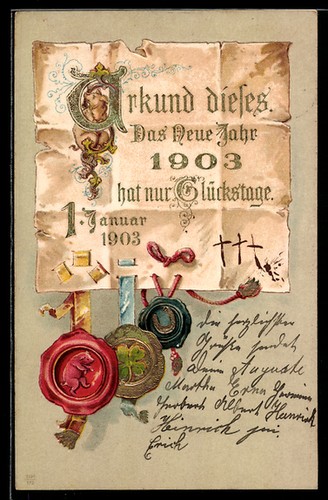 Urkund dieses.
Das Neue Jahr
1903
hat nur Glückstage.
1. Januar
1903
†††
die herzlichsten
Grüße sendet
Auguste
Martha Erna Hermine
Herbert Albert Heinrich
Heinrich jun.
Erich